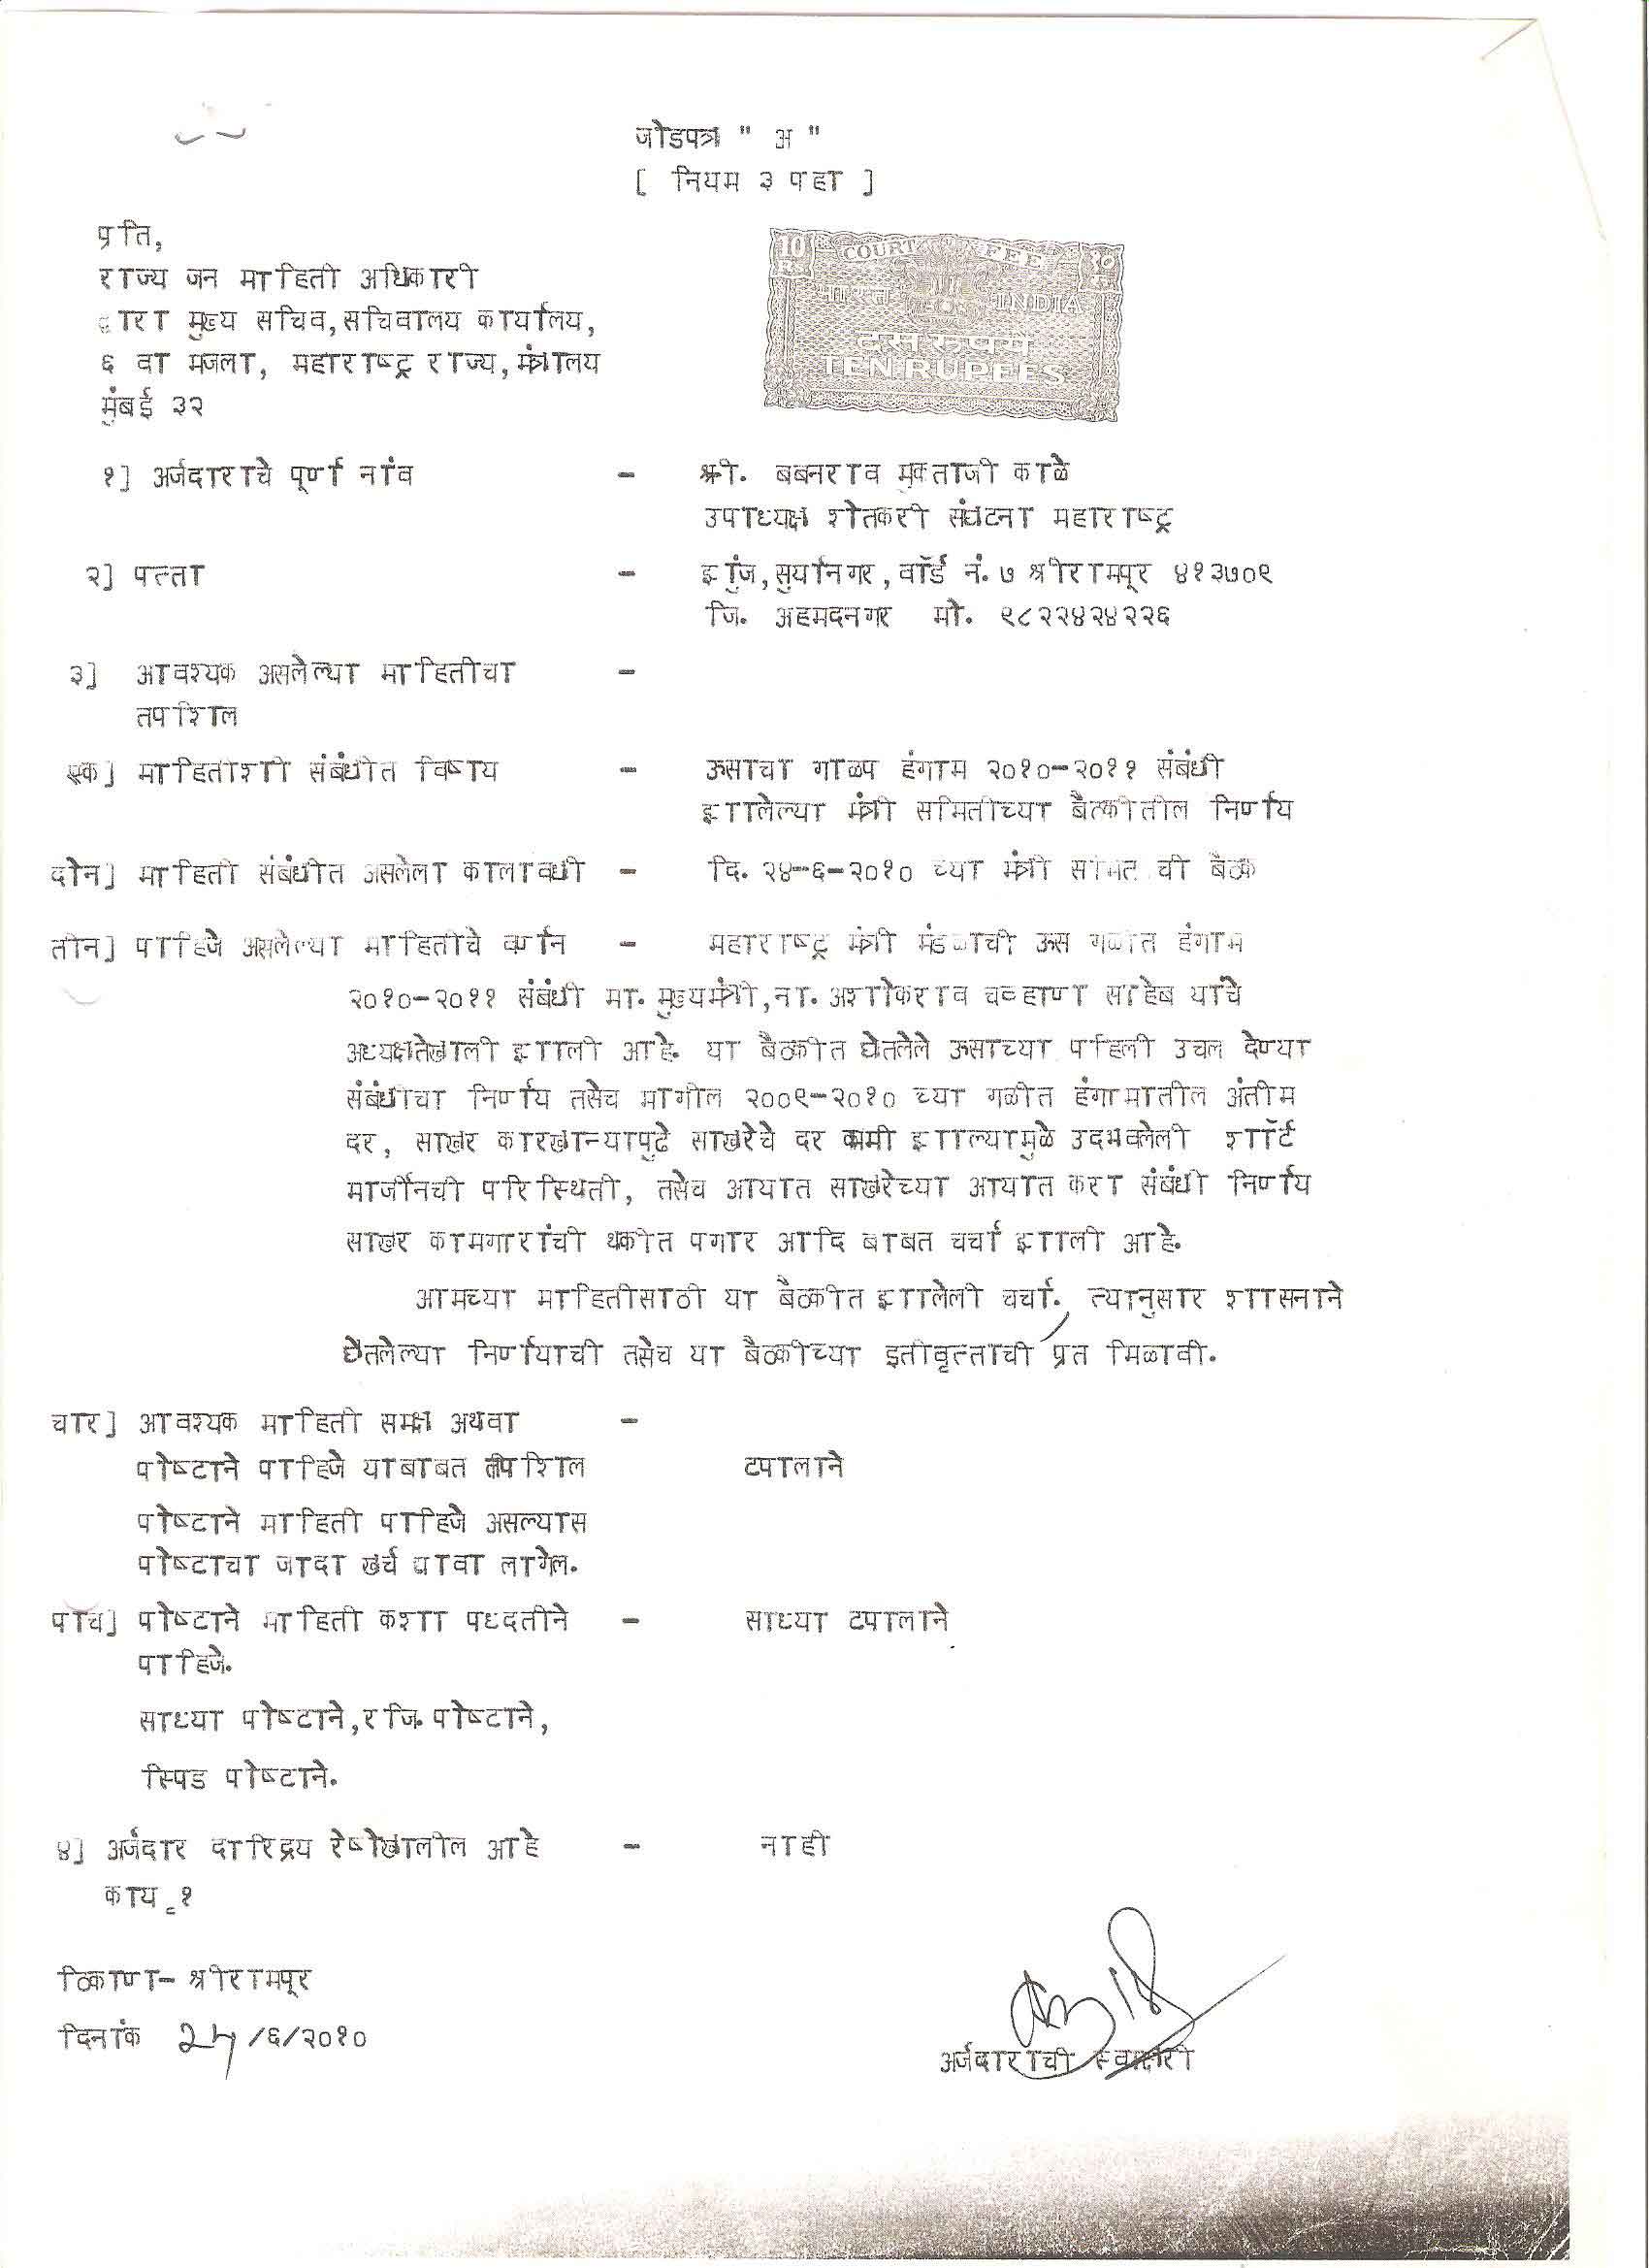 जोडपत्र " अ "
[ नियम ३ पहा ]
प्रति,
राज्य जन माहिती अधिकारी
द्वारा मुख्य सचिव, सचिवालय कार्यालय,
६ वा मजला, महाराष्ट्र राज्य, मंत्रालय
मुंबई ३२
10 COURT FEE १०
भारत INDIA
दस रुपये
TEN RUPEES
१] अर्जदाराचे पूर्ण नांव - श्री. बबनराव मुक्ताजी काळे
उपाध्यक्ष शेतकरी संघटना महाराष्ट्र
२] पत्ता - झुंज, सुर्यानगर, वॉर्ड नं. ७ श्रीरामपूर ४१३७०९
जि. अहमदनगर मो. ९८२२४२४२२६
३] आवश्यक असलेल्या माहितीचा -
तपशिल
एक] माहिताशी संबंधीत विषय - ऊसाचा गाळप हंगाम २०१०-२०११ संबंधी
झालेल्या मंत्री समितीच्या बैठकीतील निर्णय
दोन] माहिती संबंधीत असलेला कालावधी - दि. २४-६-२०१० च्या मंत्री समिती ची बैठक
तीन] पाहिजे असलेल्या माहितीचे वर्णन - महाराष्ट्र मंत्री मंडळाची ऊस गळीत हंगाम
२०१०-२०११ संबंधी मा. मुख्यमंत्री, ना. अशोकराव चव्हाण साहेब यांचे
अध्यक्षतेखाली झाली आहे. या बैठकीत घेतलेले ऊसाच्या पहिली उचल देण्या
संबंधीचा निर्णय तसेच मागील २००९-२०१० च्या गळीत हंगामातील अंतीम
दर, साखर कारखान्यापुढे साखरेचे दर कमी झाल्यामुळे उदभवलेली शॉर्ट
मार्जीनची परिस्थिती, तसेच आयात साखरेच्या आयात करा संबंधी निर्णय
साखर कामगारांची थकीत पगार आदि बाबत चर्चा झाली आहे.
आमच्या माहितीसाठी या बैठकीत झालेली चर्चा., त्यानुसार शासनाने
घेतलेल्या निर्णयाची तसेच या बैठकीच्या इतीवृत्ताची प्रत मिळावी.
चार] आवश्यक माहिती समक्ष अथवा -
पोष्टाने पाहिजे याबाबत तपशिल टपालाने
पोष्टाने माहिती पाहिजे असल्यास
पोष्टाचा जादा खर्च द्यावा लागेल.
पाच] पोष्टाने माहिती कशा पध्दतीने - साध्या टपालाने
पाहिजे.
साध्या पोष्टाने, रजि. पोष्टाने,
स्पिड पोष्टाने.
४] अर्जदार दारिद्रय रेषेखालील आहे - नाही
काय १
ठिकाण- श्रीरामपूर
दिनांक २५/६/२०१०
अर्जदाराची स्वाक्षरी